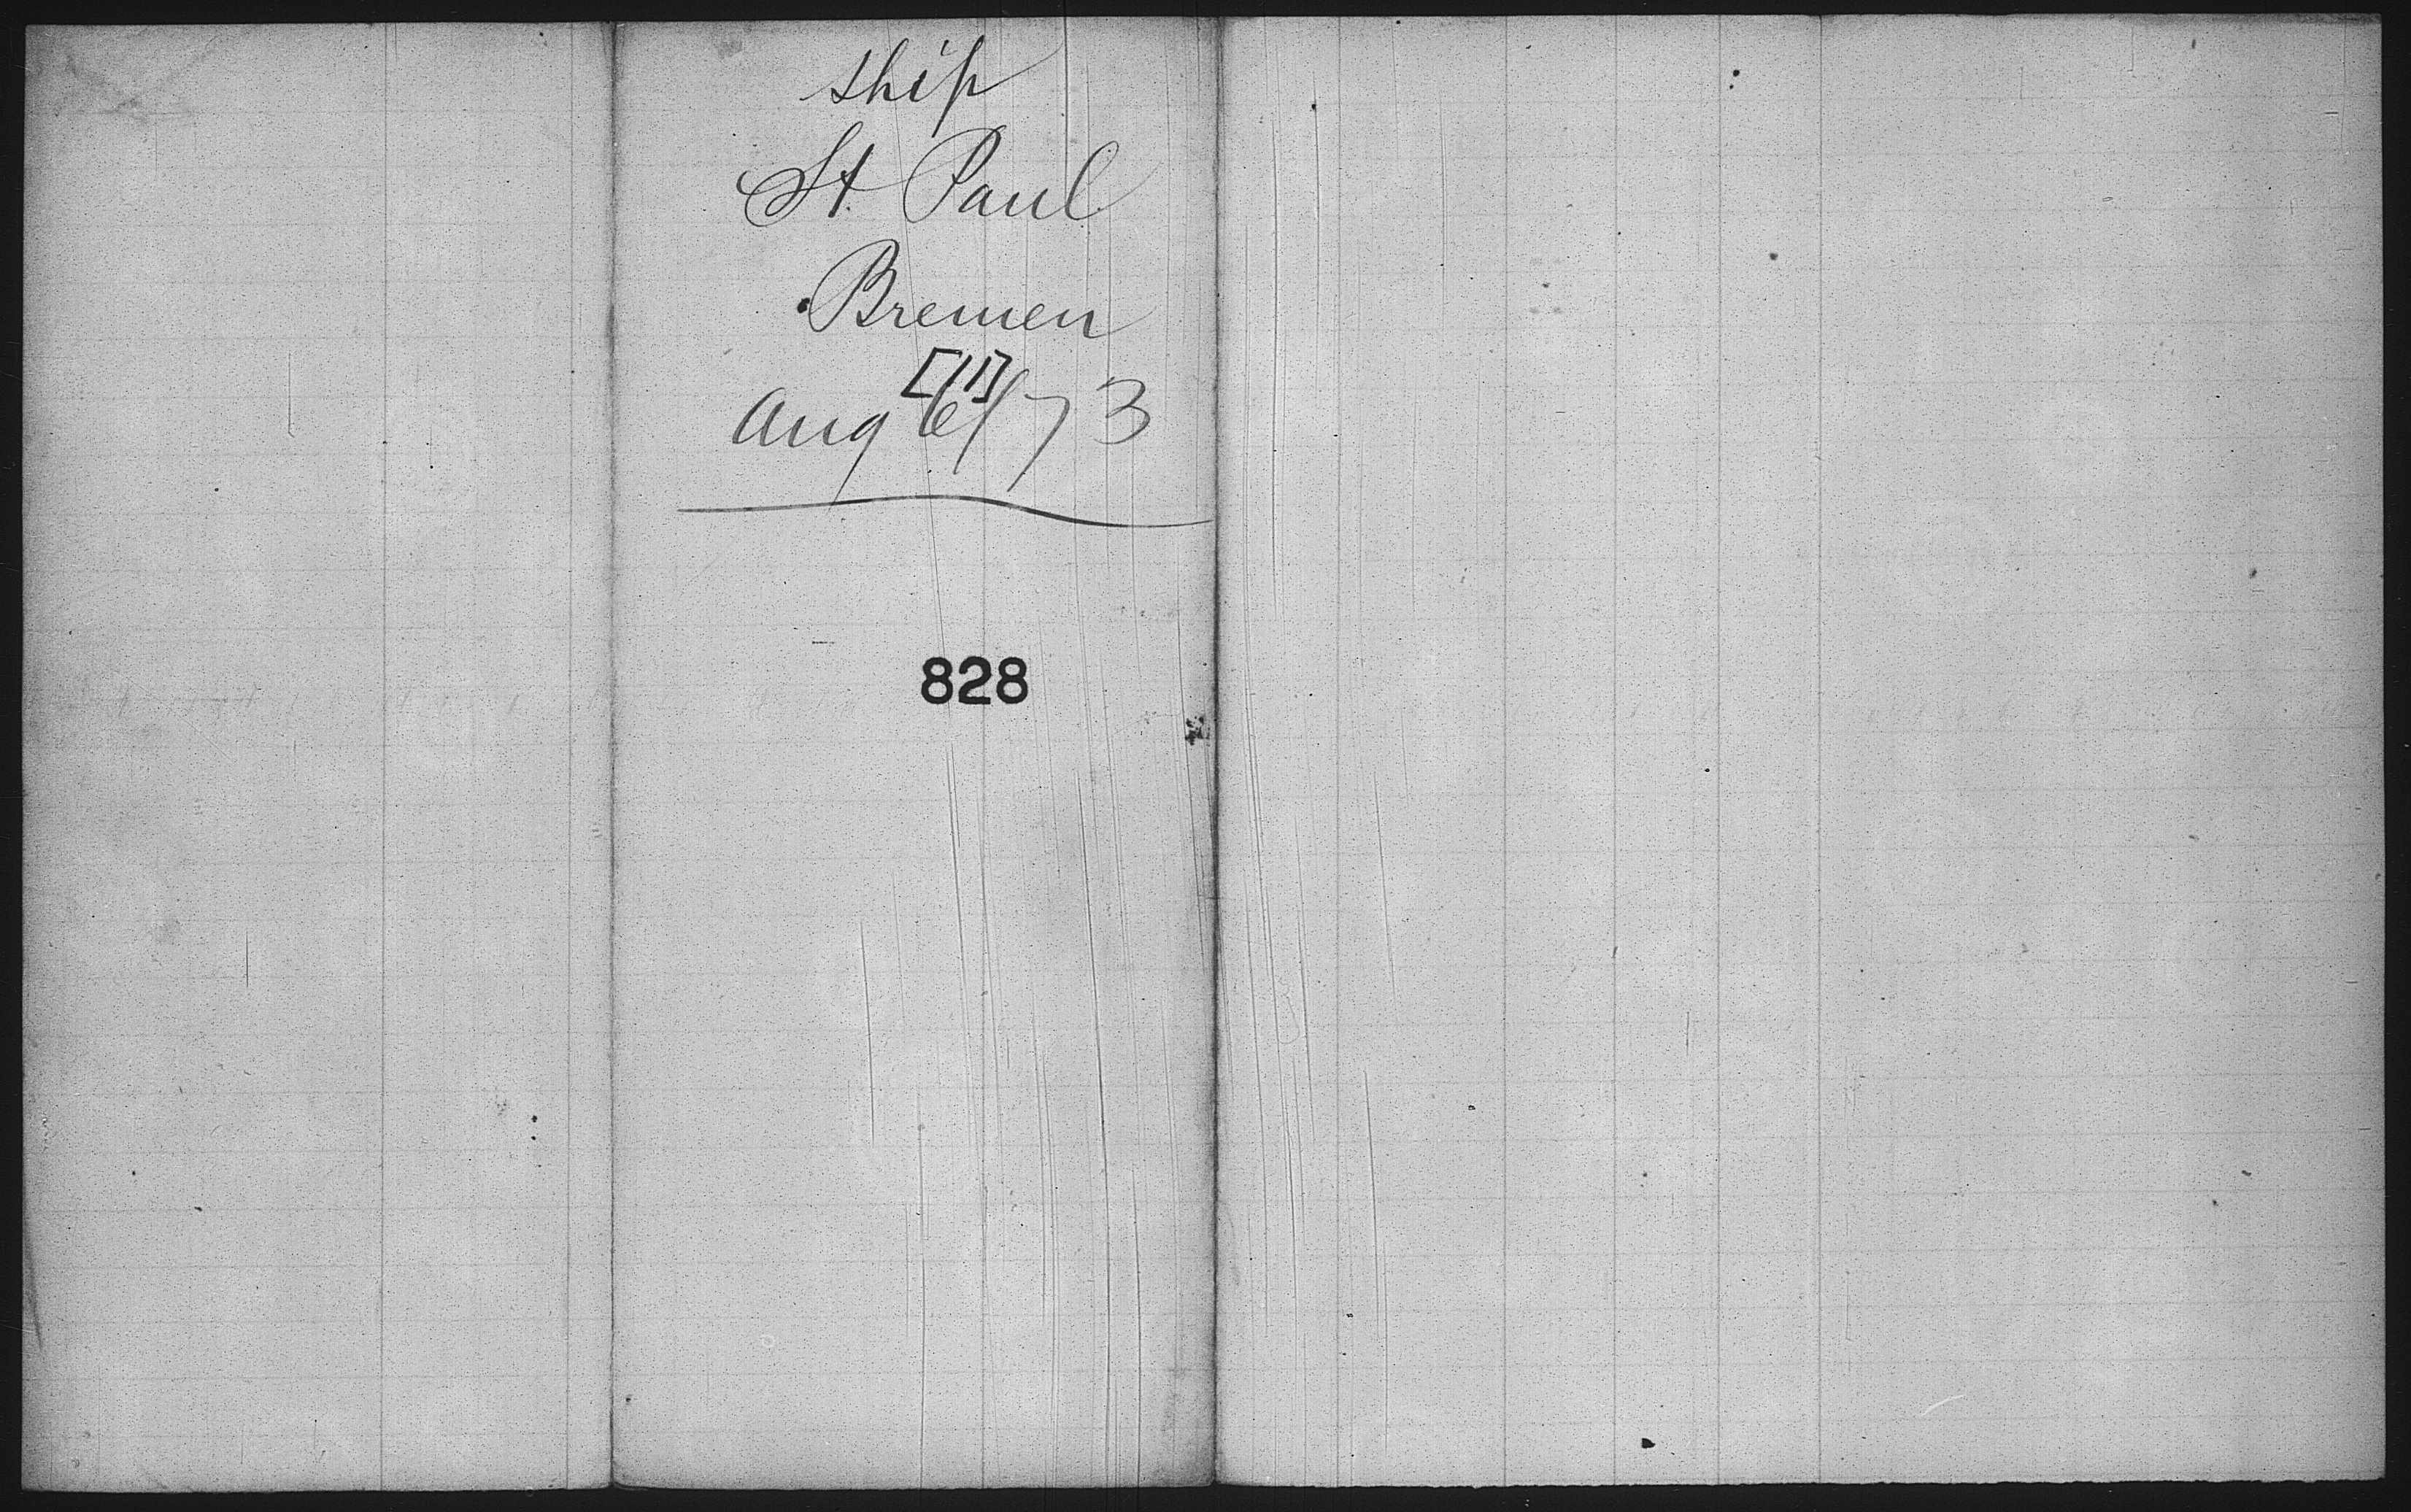 ship
St. Paul
Bremen
[11]
Aug 6/73
828